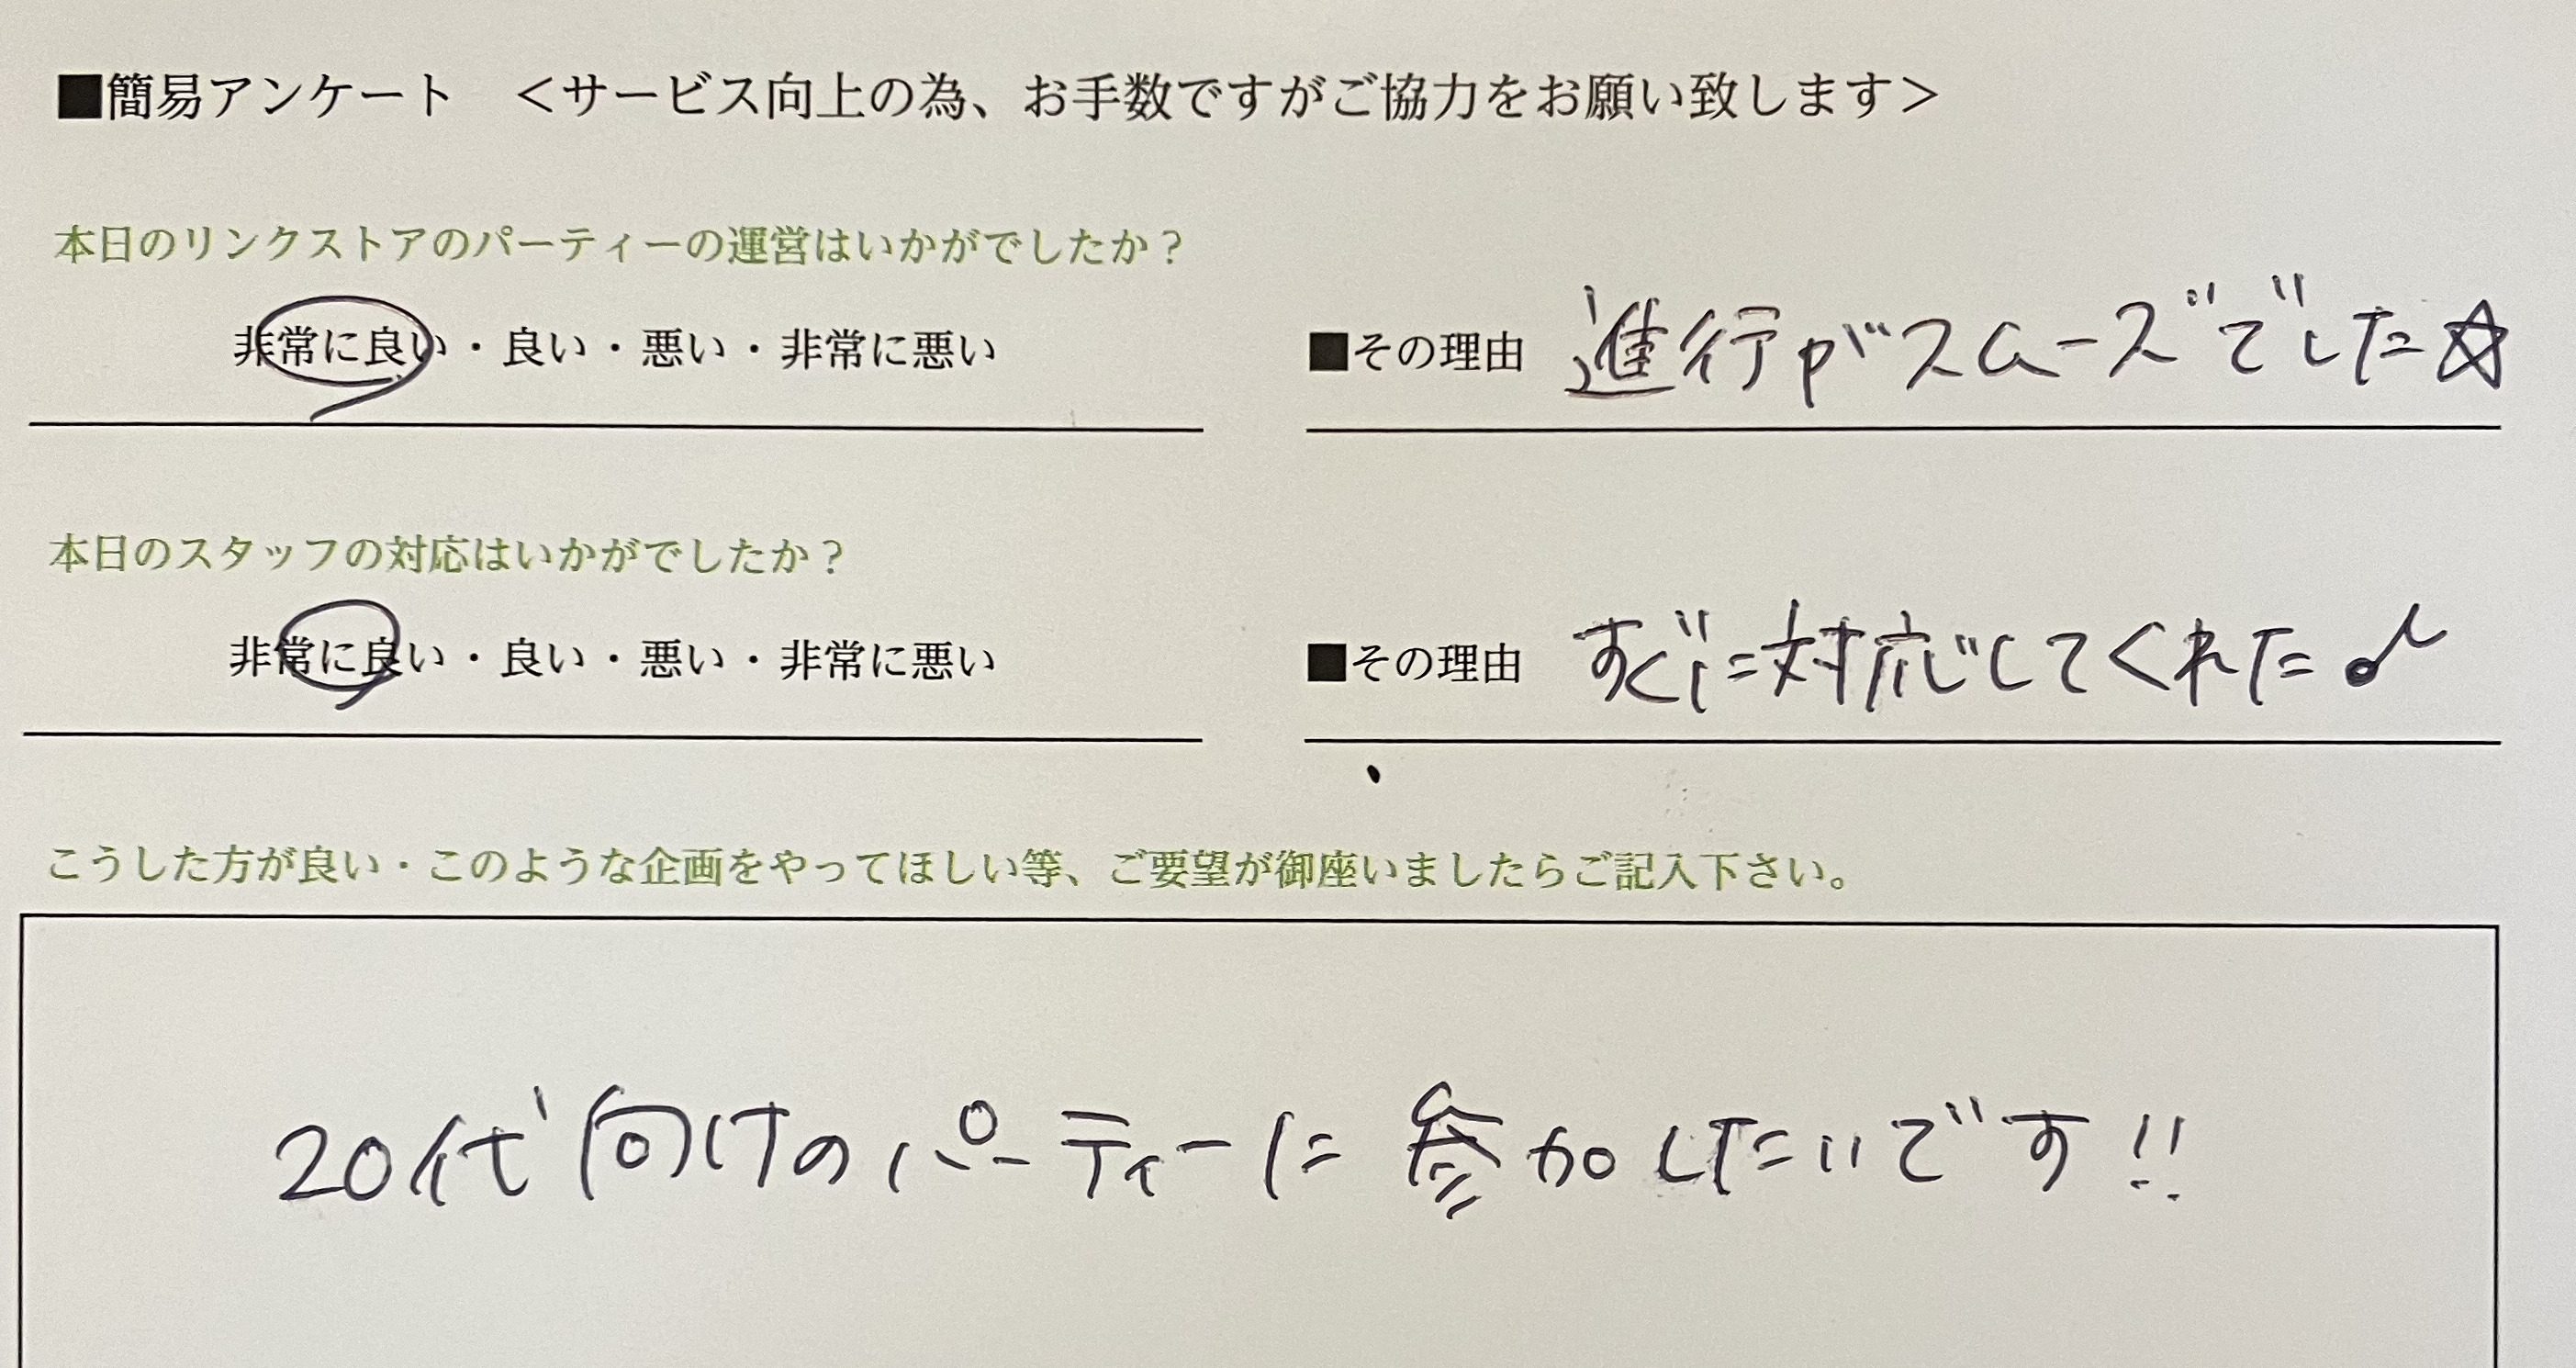 ■簡易アンケート　＜サービス向上の為、お手数ですがご協力をお願い致します＞
本日のリンクストアのパーティーの運営はいかがでしたか？
非常に良い・良い・悪い・非常に悪い　■その理由　進行がスムーズでした☆
本日のスタッフの対応はいかがでしたか？
非常に良い・良い・悪い・非常に悪い　■その理由　すぐに対応してくれた♪
こうした方が良い・このような企画をやってほしい等、ご要望が御座いましたらご記入下さい。
20代向けのパーティーに参加したいです!!